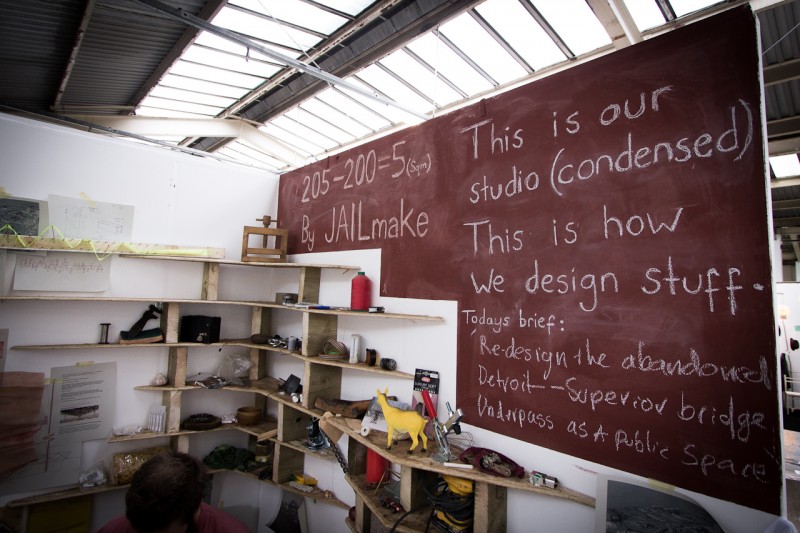 205-200=5(Sqm)
By JAILmake
This is our
studio (condensed)
This is how
We design stuff.
Todays brief:
Re-design the abandoned
Detroit--Superior bridge
Underpass as A Public Space